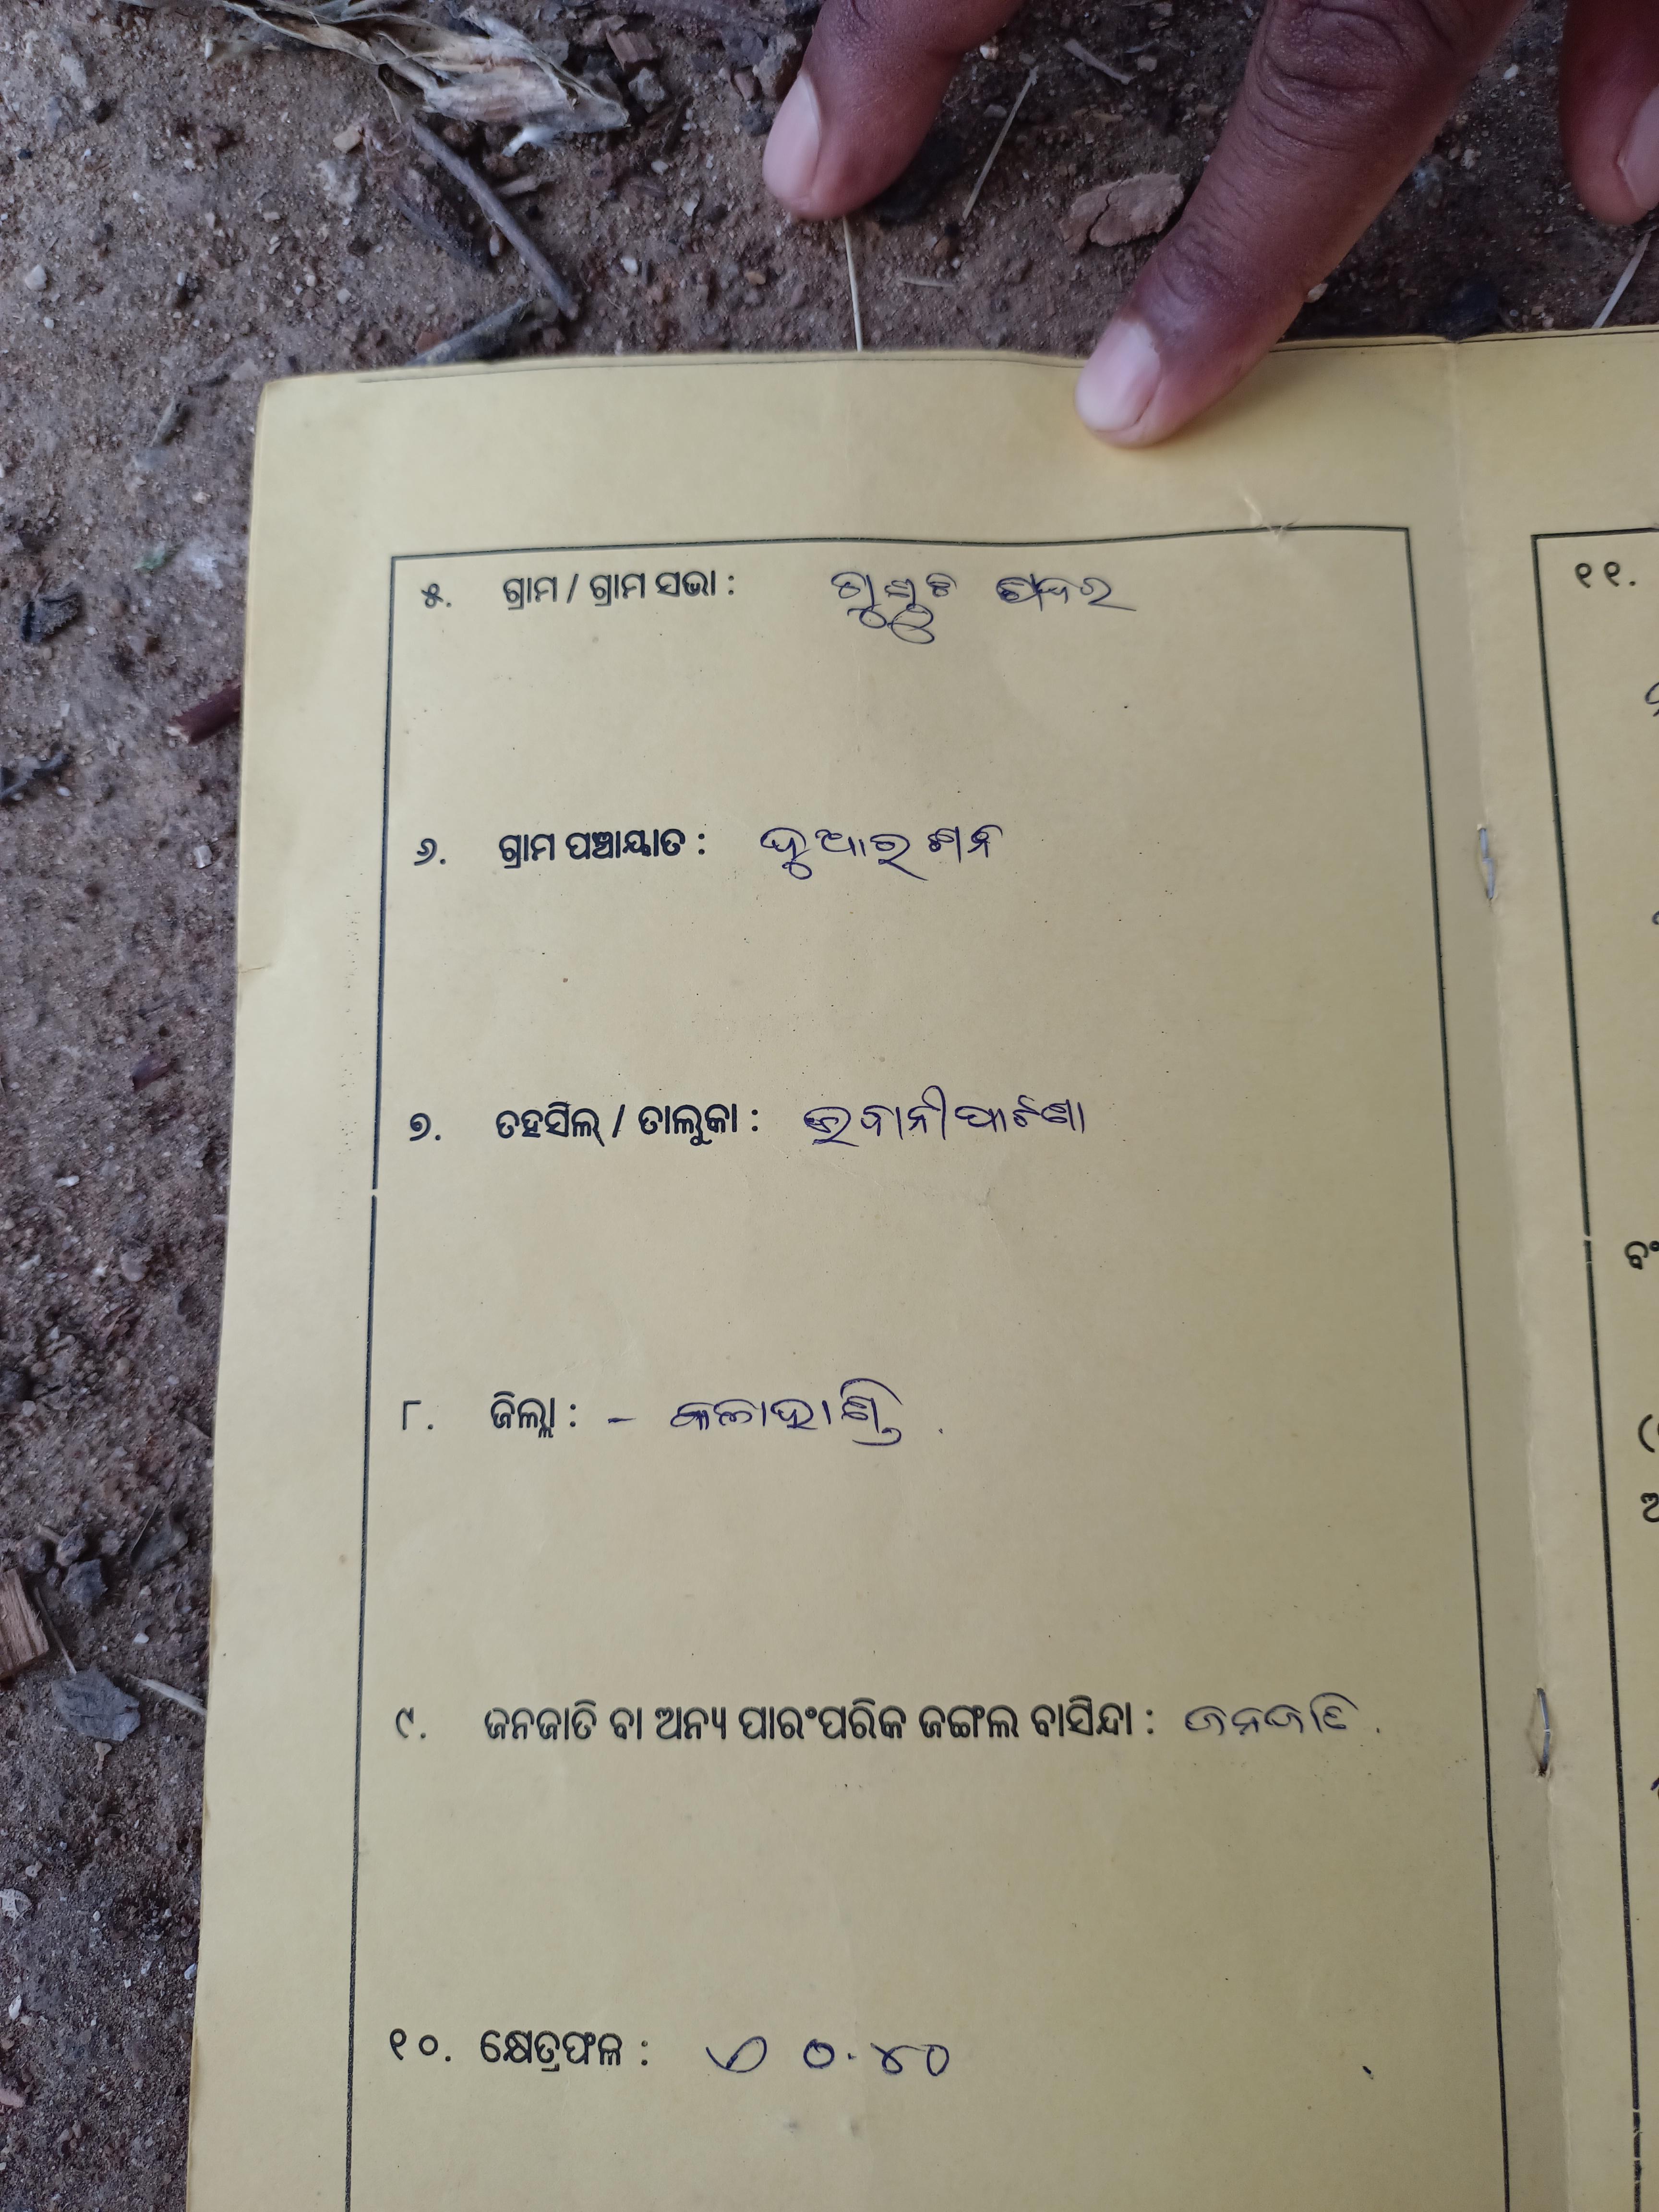 ୫. ଗ୍ରାମ / ଗ୍ରାମ ସଭା :
୬. ଗ୍ରାମ ପଞ୍ଚାୟାତ :
୭. ତହସିଲ୍ / ତାଲୁକା : ଭବାନୀପାଟଣା
୮. ଜିଲ୍ଲା : - କଳାହାଣ୍ଡି .
୯. ଜନଜାତି ବା ଅନ୍ୟ ପାରଂପରିକ ଜଙ୍ଗଲ ବାସିନ୍ଦା : ଜନଜାତି .
୧୦. କ୍ଷେତ୍ରଫଳ : ୦.୪୦
୧୧.